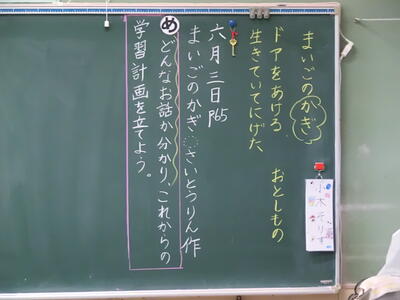 まいごのかぎ
ドアをあける　おとしもの
生きていてにげた
六月三日
P65
まいごのかぎ　さいとうりん作
め どんなお話か分かり、これからの
学習計画を立てよう。